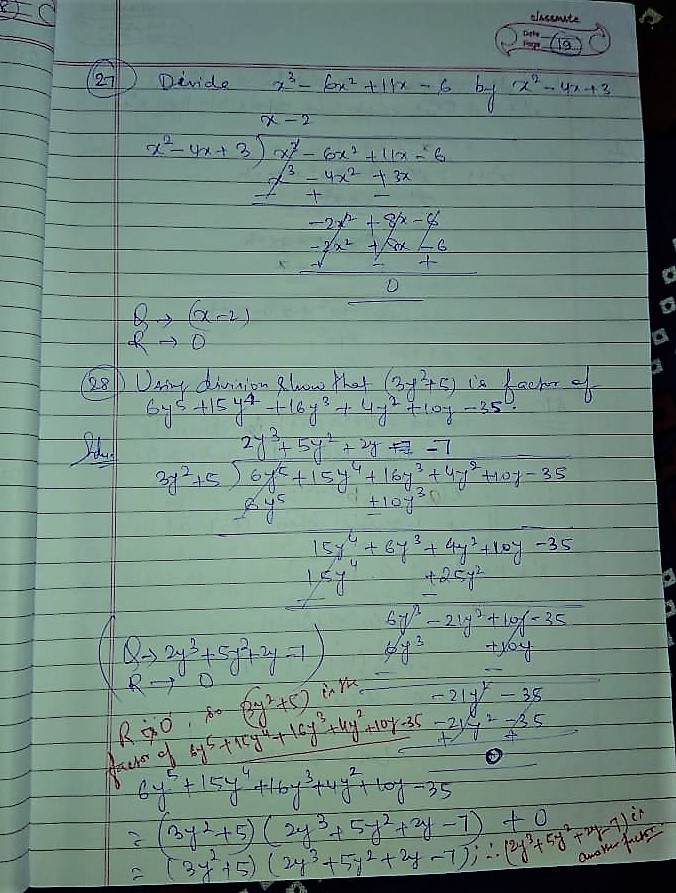 classmate
Date
Page 19
27 Divide x³ - 6x² + 11x - 6 by x² - 4x + 3
x - 2
x² - 4x + 3 ) x³ - 6x² + 11x - 6
x³ - 4x² + 3x
- + -
-2x² + 8x - 6
-2x² + 8x - 6
+ - +
0
Q → (x - 2)
R → 0
28 Using division show that (3y²+5) is factor of
6y⁵ + 15y⁴ + 16y³ + 4y² + 10y - 35.
Soln
2y³ + 5y² + 2y - 7
3y² + 5 ) 6y⁵ + 15y⁴ + 16y³ + 4y² + 10y - 35
6y⁵ + 10y³
- -
15y⁴ + 6y³ + 4y² + 10y - 35
15y⁴ + 25y²
- -
6y³ - 21y² + 10y - 35
6y³ + 10y
- -
(Q → 2y³ + 5y² + 2y - 7
R → 0)
-21y² - 35
-21y² - 35
+ +
0
R is 0, so (3y²+5) is the
factor of 6y⁵ + 15y⁴ + 16y³ + 4y² + 10y - 35
6y⁵ + 15y⁴ + 16y³ + 4y² + 10y - 35
= (3y² + 5) (2y³ + 5y² + 2y - 7) + 0
= (3y² + 5) (2y³ + 5y² + 2y - 7); ∴ (2y³ + 5y² + 2y - 7) is
another factor.